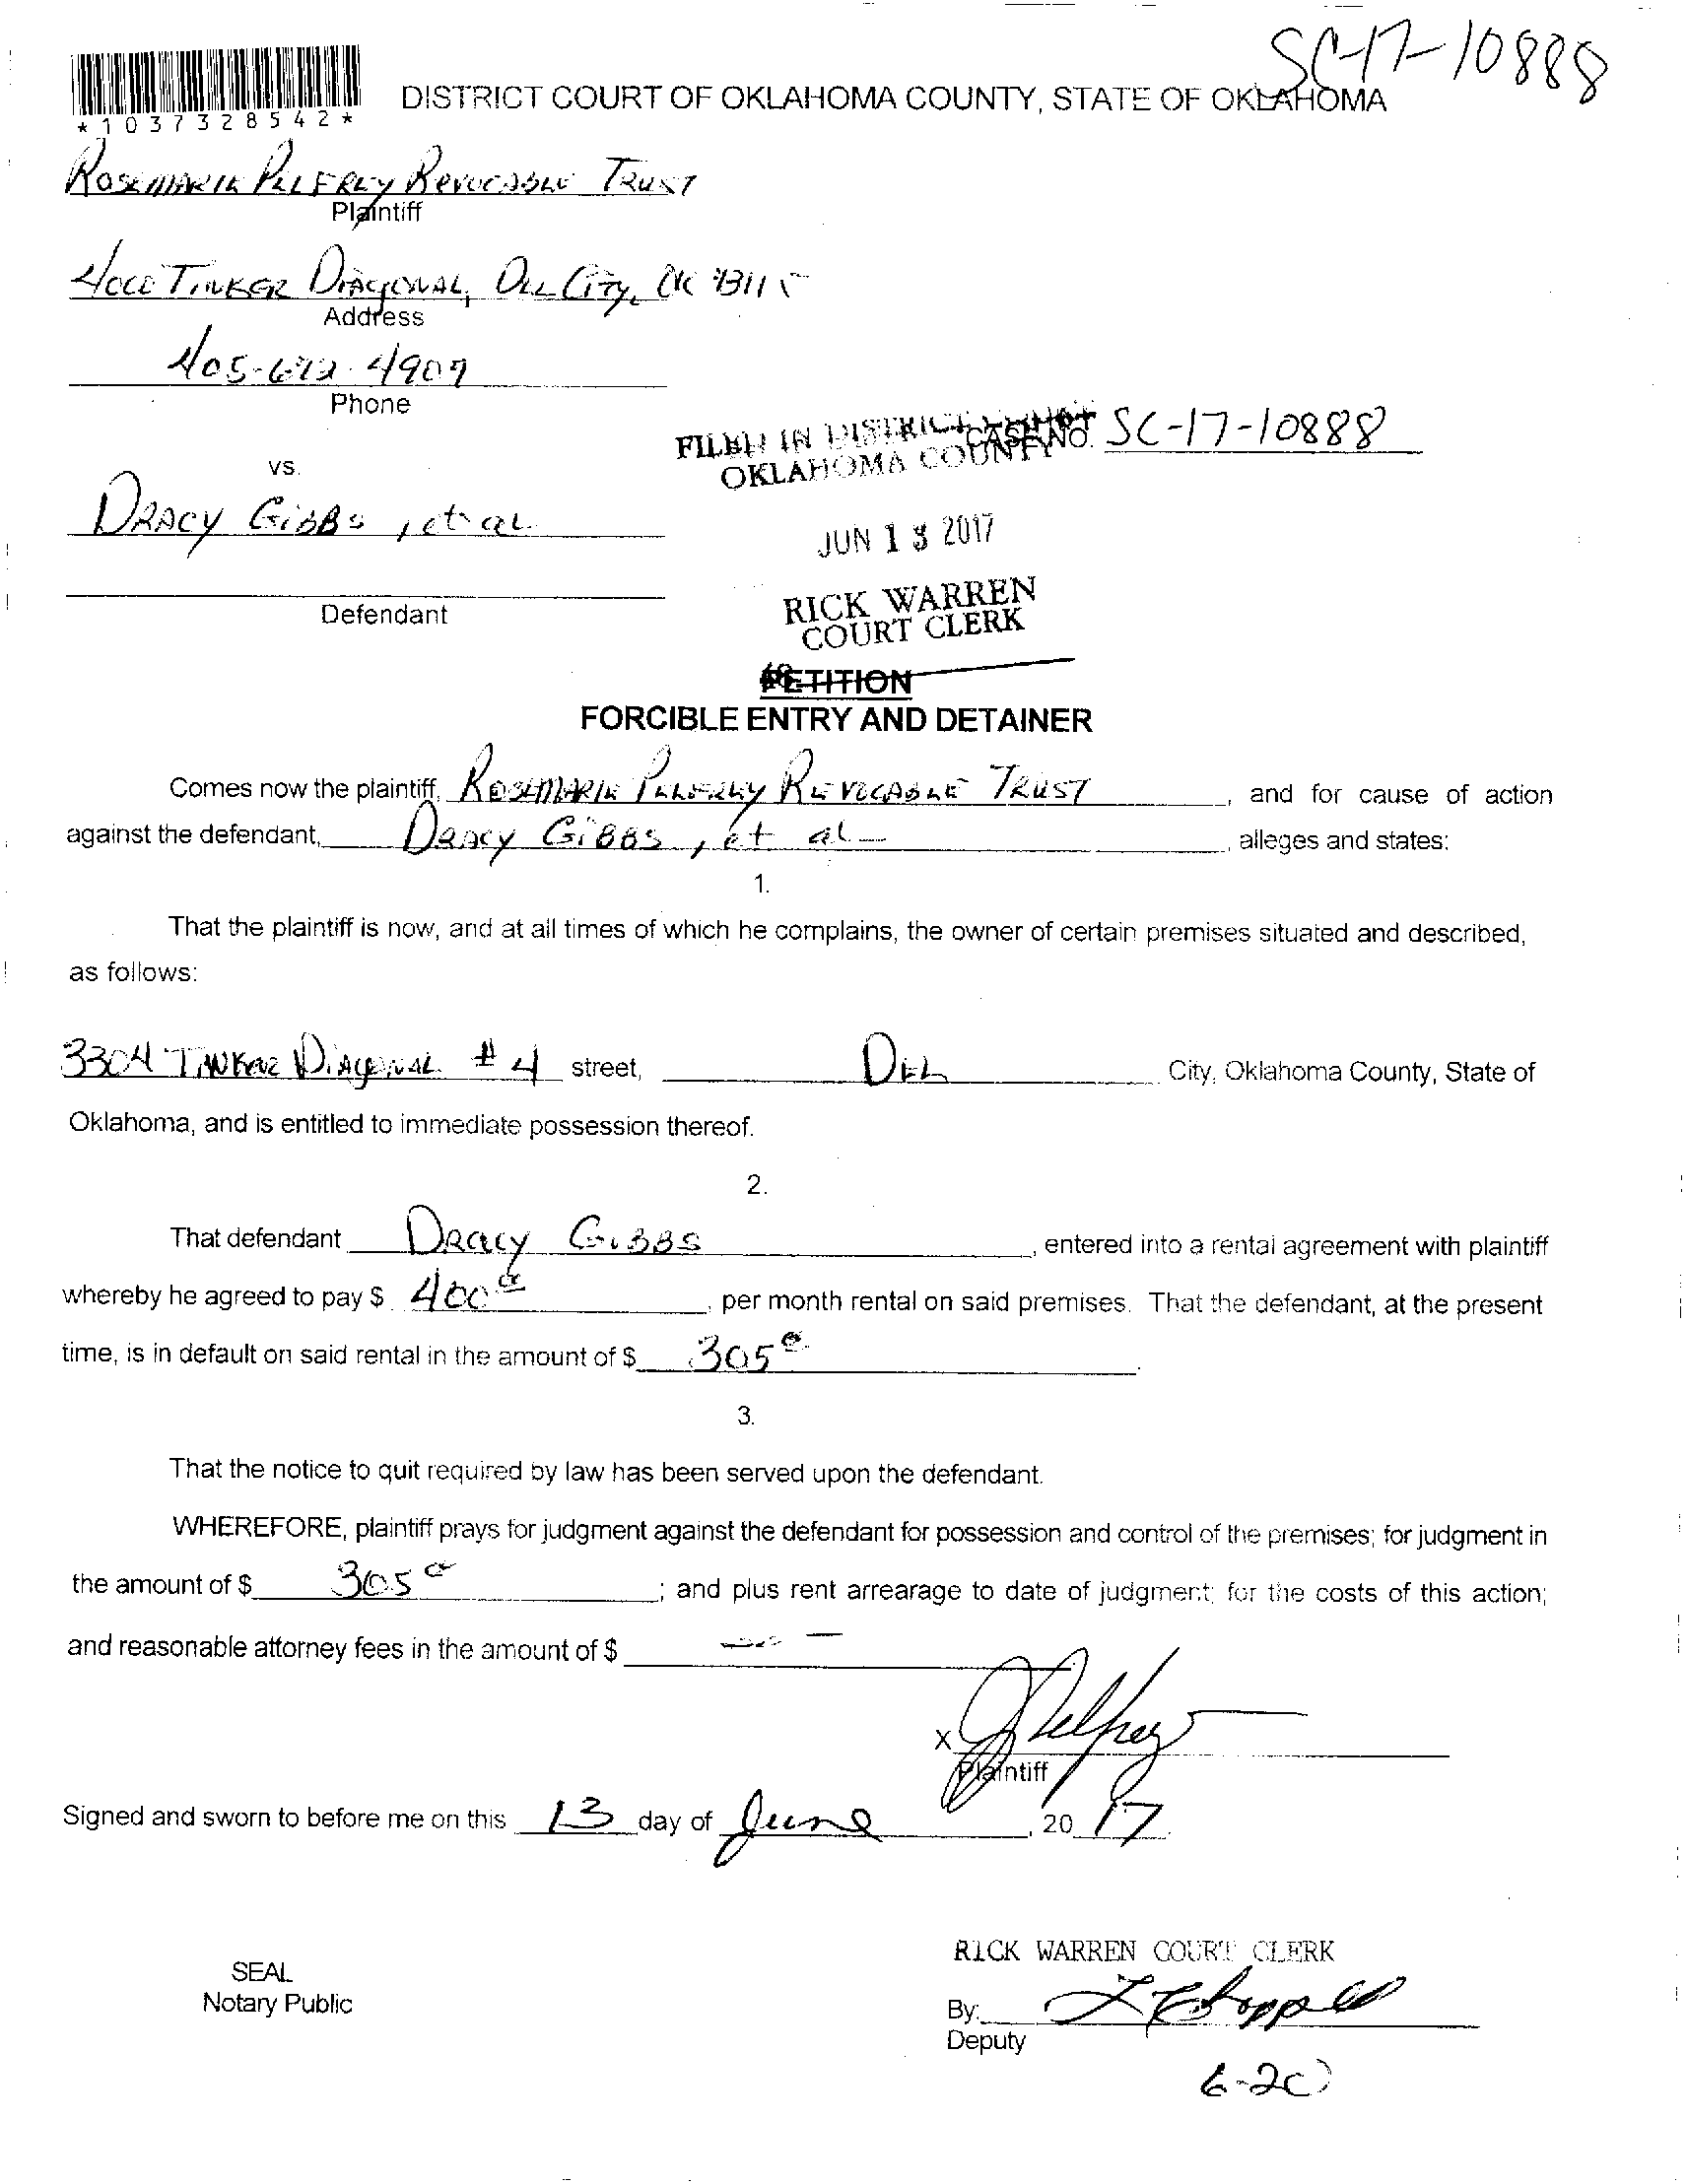 SC-17-10888
*1037328542*
DISTRICT COURT OF OKLAHOMA COUNTY, STATE OF OKLAHOMA
ROSEMARIE PELFREY REVOCABLE TRUST
Plaintiff
TINKER DIAGONAL, DEL CITY, OK 73115
Address
405-672-4907
Phone
FILED IN DISTRICT COURT
OKLAHOMA COUNTY
CASE NO. SC-17-10888
vs.
DRACY GIBBS, et al
JUN 13 2017
Defendant
RICK WARREN
COURT CLERK
PETITION
FORCIBLE ENTRY AND DETAINER
Comes now the plaintiff, ROSEMARIE PELFREY REVOCABLE TRUST, and for cause of action
against the defendant, DRACY GIBBS, et al alleges and states:
1.
That the plaintiff is now, and at all times of which he complains, the owner of certain premises situated and described,
as follows:
3304 TINKER DIAGONAL #4 street, DEL City, Oklahoma County, State of
Oklahoma, and is entitled to immediate possession thereof.
2.
That defendant DRACY GIBBS, entered into a rental agreement with plaintiff
whereby he agreed to pay $ 400, per month rental on said premises. That the defendant, at the present
time, is in default on said rental in the amount of $ 305.
3.
That the notice to quit required by law has been served upon the defendant.
WHEREFORE, plaintiff prays for judgment against the defendant for possession and control of the premises; for judgment in
the amount of $ 305; and plus rent arrearage to date of judgment; for the costs of this action;
and reasonable attorney fees in the amount of $
x J Pelfrey
Plaintiff
Signed and sworn to before me on this 13 day of June, 20 17.
RICK WARREN COURT CLERK
SEAL
Notary Public
By:
Deputy
6-20